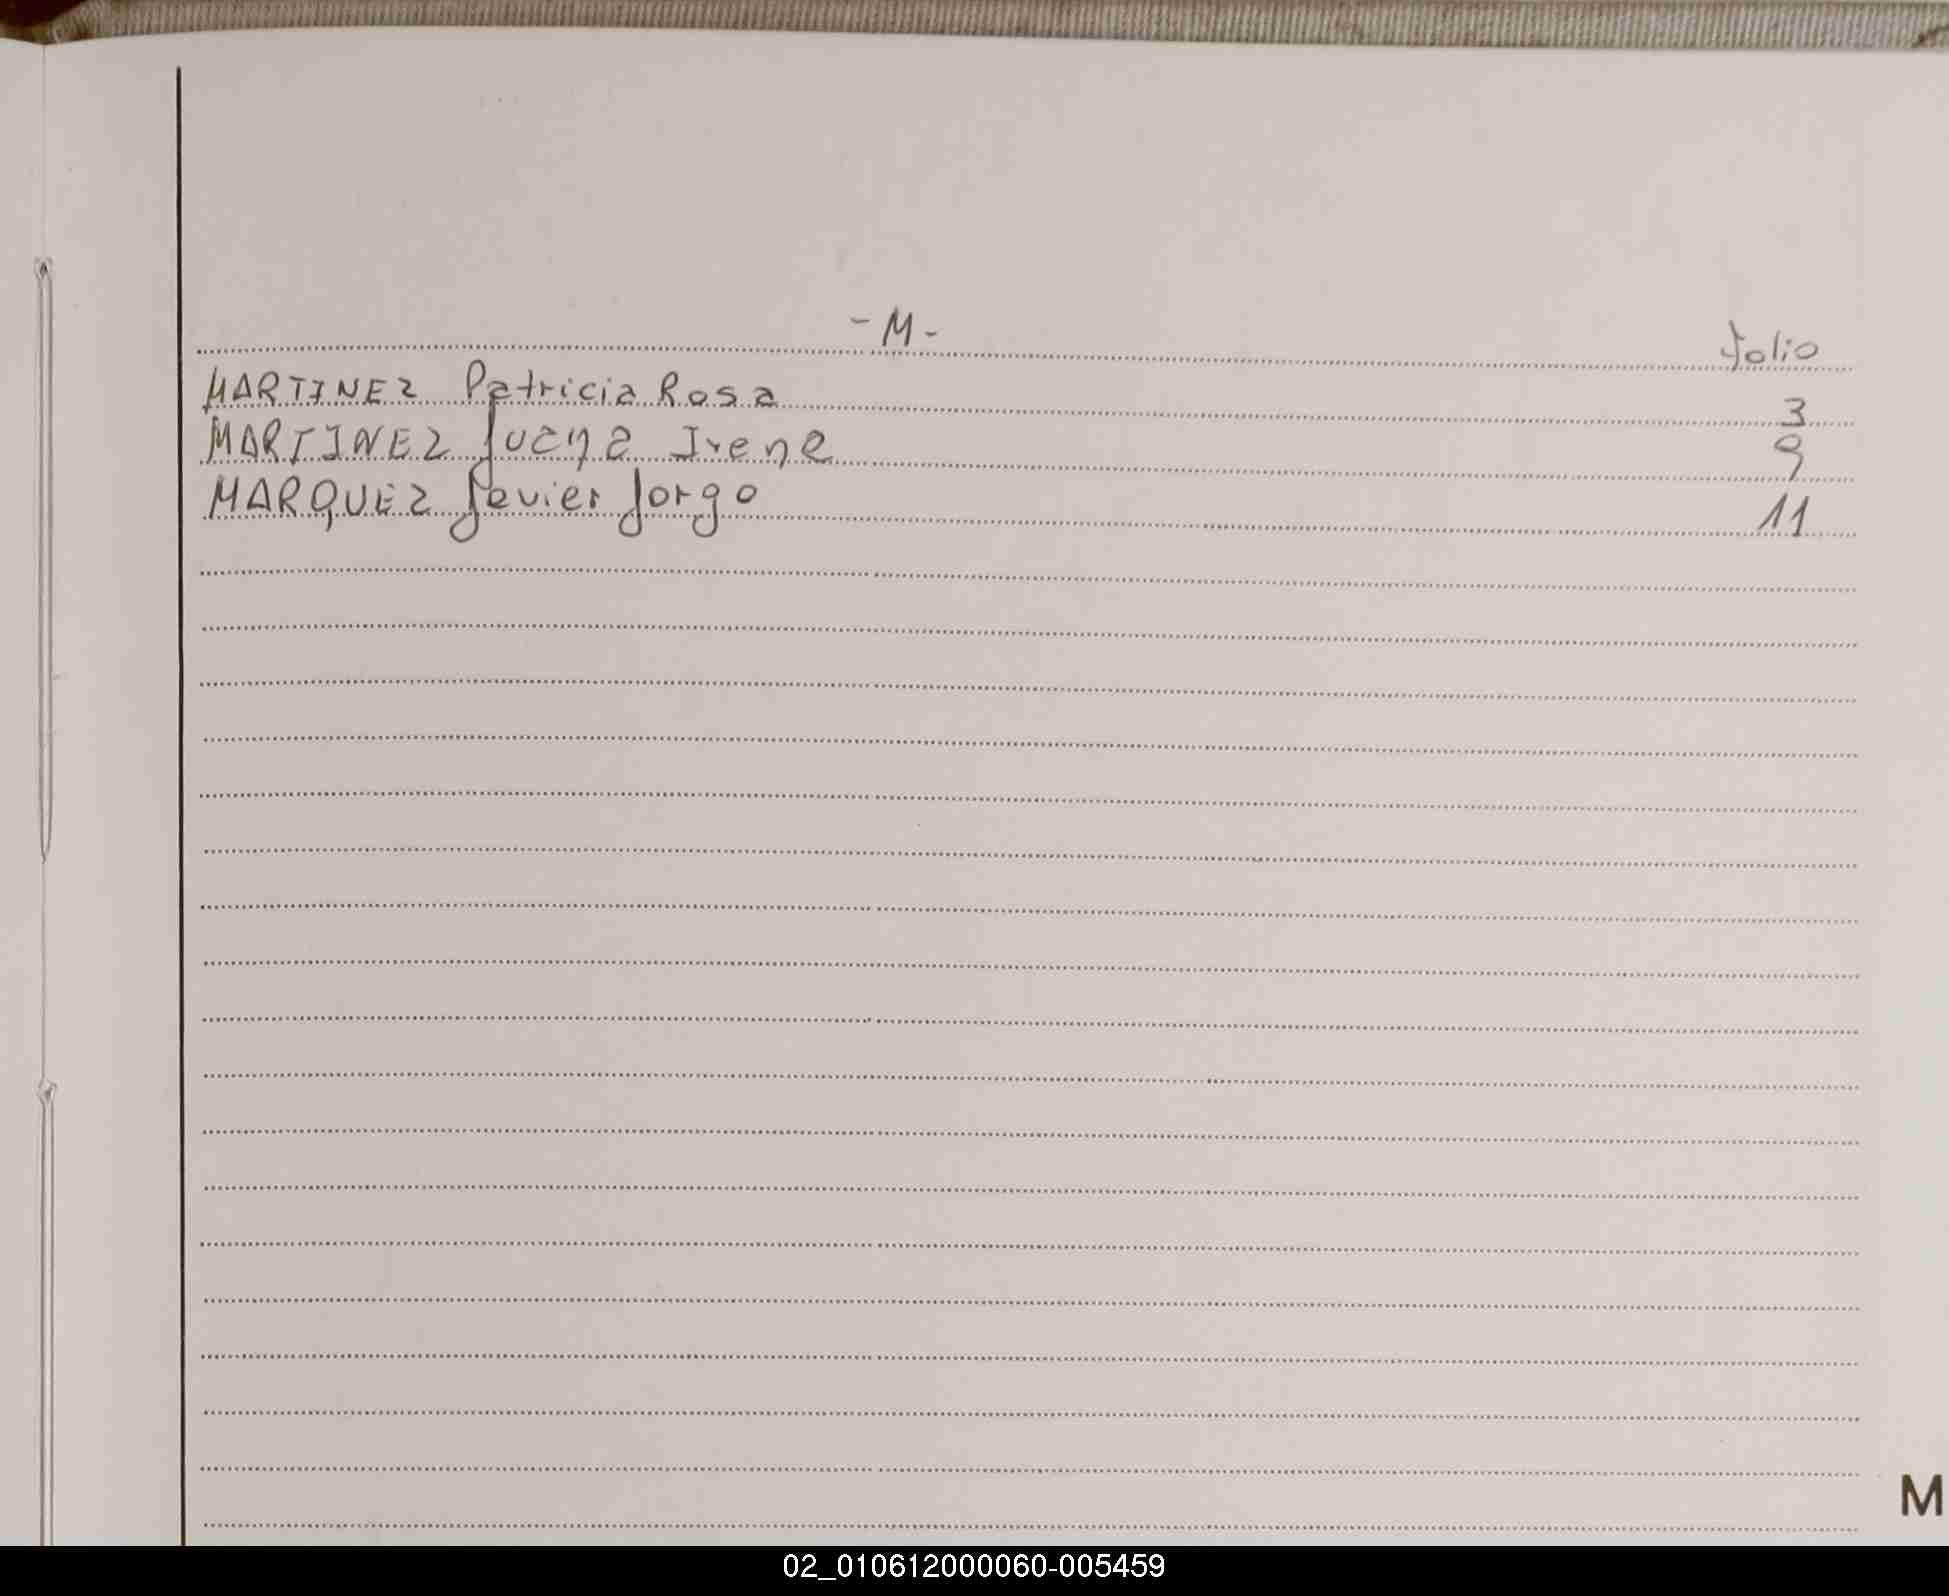 - M -
folio
MARTINEZ Patricia Rosa 3
MARTINEZ Juana Irene 9
MARQUEZ Javier Jorge 11
M
02_010612000060-005459